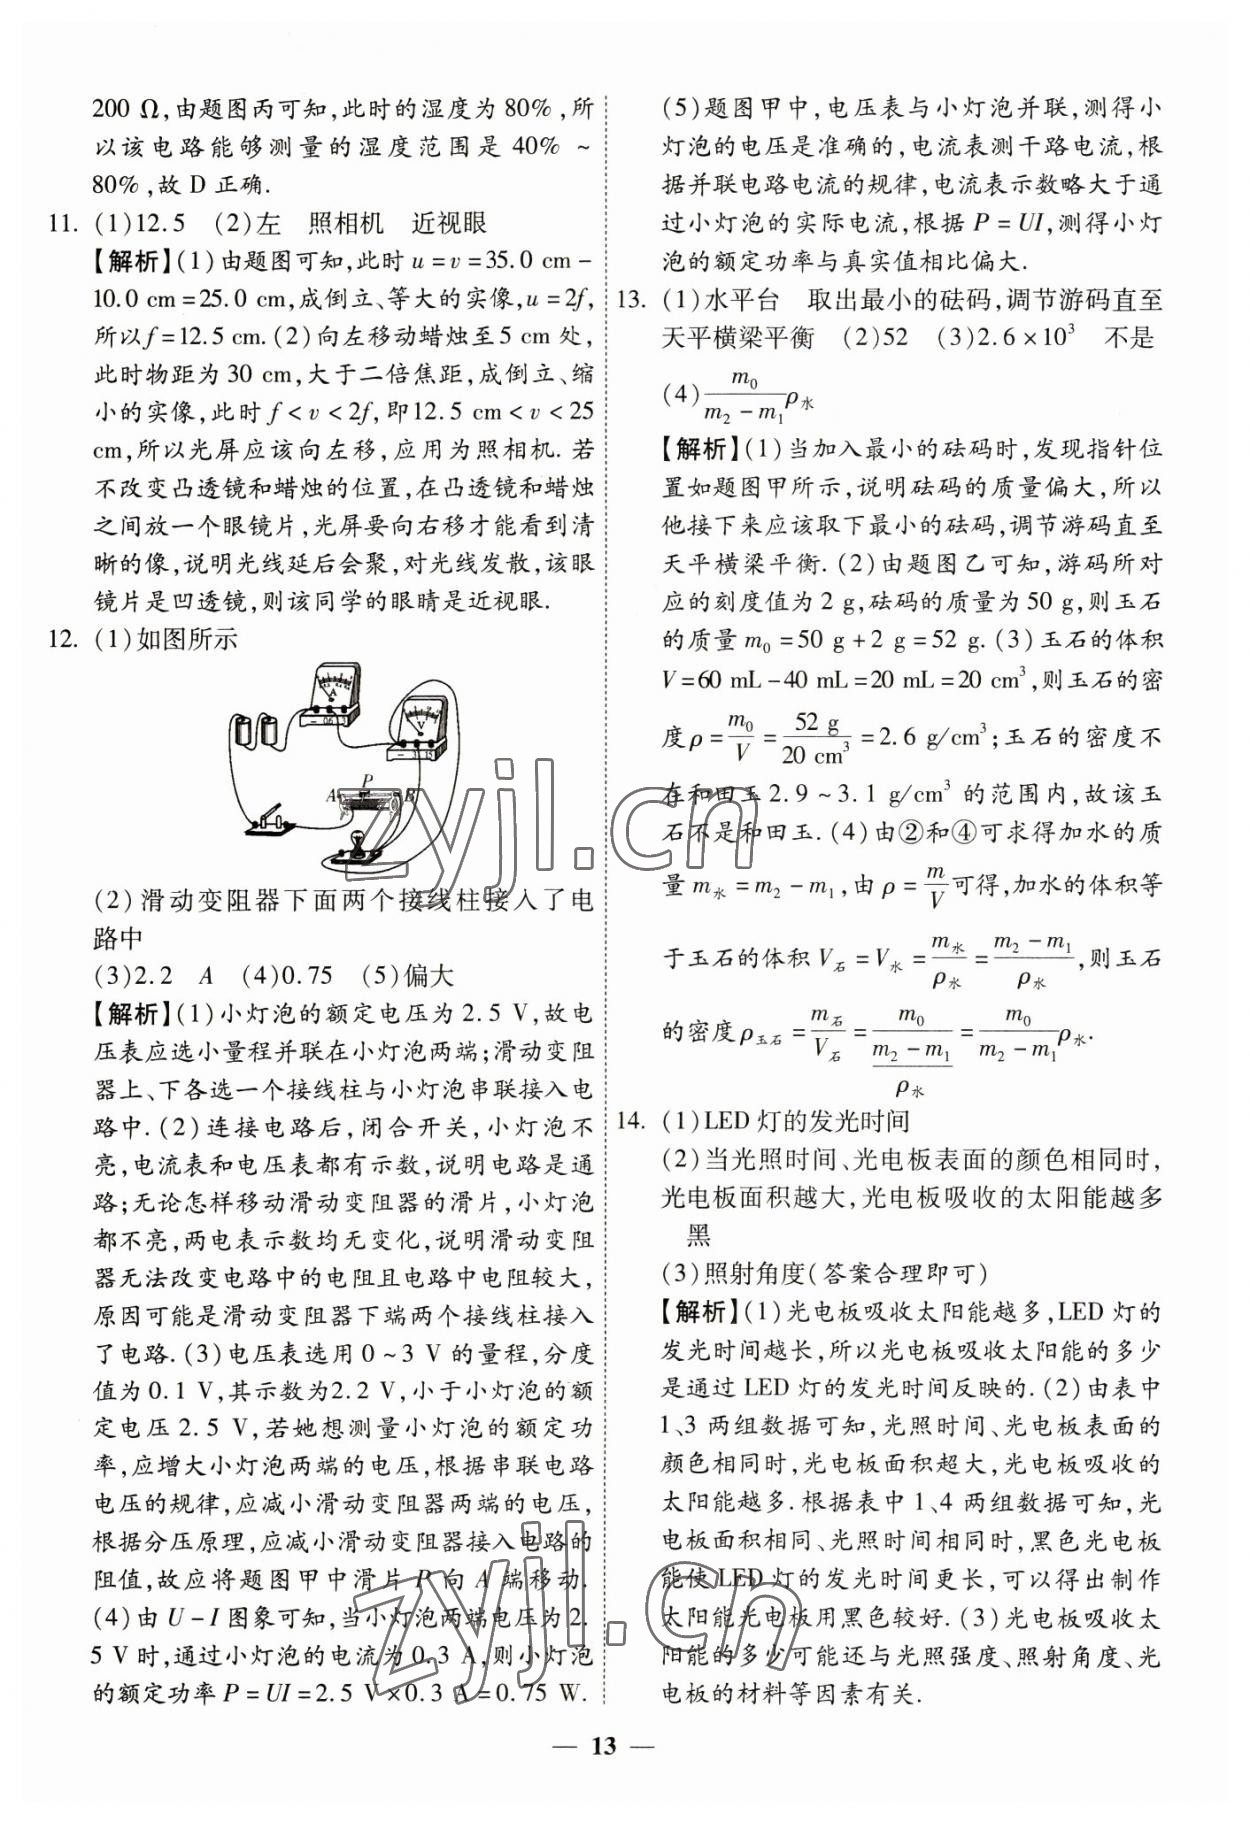 200 Ω,由题图丙可知,此时的湿度为80%,所
以该电路能够测量的湿度范围是40%~
80%,故D正确.
11. (1)12.5 (2)左 照相机 近视眼
【解析】(1)由题图可知,此时u=v=35.0 cm-
10.0 cm=25.0 cm,成倒立、等大的实像,u=2f,
所以f=12.5 cm.(2)向左移动蜡烛至5 cm处,
此时物距为30 cm,大于二倍焦距,成倒立、缩
小的实像,此时f<v<2f,即12.5 cm<v<25
cm,所以光屏应该向左移,应用为照相机.若
不改变凸透镜和蜡烛的位置,在凸透镜和蜡烛
之间放一个眼镜片,光屏要向右移才能看到清
晰的像,说明光线延后会聚,对光线发散,该眼
镜片是凹透镜,则该同学的眼睛是近视眼.
12. (1)如图所示
A
V
P
A B
(2)滑动变阻器下面两个接线柱接入了电
路中
(3)2.2 A (4)0.75 (5)偏大
【解析】(1)小灯泡的额定电压为2.5 V,故电
压表应选小量程并联在小灯泡两端;滑动变阻
器上、下各选一个接线柱与小灯泡串联接入电
路中.(2)连接电路后,闭合开关,小灯泡不
亮,电流表和电压表都有示数,说明电路是通
路;无论怎样移动滑动变阻器的滑片,小灯泡
都不亮,两电表示数均无变化,说明滑动变阻
器无法改变电路中的电阻且电路中电阻较大,
原因可能是滑动变阻器下端两个接线柱接入
了电路.(3)电压表选用0~3 V的量程,分度
值为0.1 V,其示数为2.2 V,小于小灯泡的额
定电压2.5 V,若她想测量小灯泡的额定功
率,应增大小灯泡两端的电压,根据串联电路
电压的规律,应减小滑动变阻器两端的电压,
根据分压原理,应减小滑动变阻器接入电路的
阻值,故应将题图甲中滑片P向A端移动.
(4)由U-I图象可知,当小灯泡两端电压为2.
5 V时,通过小灯泡的电流为0.3 A,则小灯泡
的额定功率P=UI=2.5 V×0.3 A=0.75 W.
(5)题图甲中,电压表与小灯泡并联,测得小
灯泡的电压是准确的,电流表测干路电流,根
据并联电路电流的规律,电流表示数略大于通
过小灯泡的实际电流,根据P=UI,测得小灯
泡的额定功率与真实值相比偏大.
13. (1)水平台 取出最小的砝码,调节游码直至
天平横梁平衡 (2)52 (3)2.6×10³ 不是
(4)\frac{m₀}{m₂-m₁}ρ水
【解析】(1)当加入最小的砝码时,发现指针位
置如题图甲所示,说明砝码的质量偏大,所以
他接下来应该取下最小的砝码,调节游码直至
天平横梁平衡.(2)由题图乙可知,游码所对
应的刻度值为2 g,砝码的质量为50 g,则玉石
的质量m₀=50 g+2 g=52 g.(3)玉石的体积
V=60 mL-40 mL=20 mL=20 cm³,则玉石的密
度ρ=\frac{m₀}{V}=\frac{52 g}{20 cm³}=2.6 g/cm³;玉石的密度不
在和田玉2.9~3.1 g/cm³的范围内,故该玉
石不是和田玉.(4)由②和④可求得加水的质
量m水=m₂-m₁,由ρ=\frac{m}{V}可得,加水的体积等
于玉石的体积V石=V水=\frac{m水}{ρ水}=\frac{m₂-m₁}{ρ水},则玉石
的密度ρ玉石=\frac{m石}{V石}=\frac{m₀}{\frac{m₂-m₁}{ρ水}}=\frac{m₀}{m₂-m₁}ρ水.
14. (1)LED灯的发光时间
(2)当光照时间、光电板表面的颜色相同时,
光电板面积越大,光电板吸收的太阳能越多
黑
(3)照射角度(答案合理即可)
【解析】(1)光电板吸收太阳能越多,LED灯的
发光时间越长,所以光电板吸收太阳能的多少
是通过LED灯的发光时间反映的.(2)由表中
1、3两组数据可知,光照时间、光电板表面的
颜色相同时,光电板面积超大,光电板吸收的
太阳能越多.根据表中1、4两组数据可知,光
电板面积相同、光照时间相同时,黑色光电板
能使LED灯的发光时间更长,可以得出制作
太阳能光电板用黑色较好.(3)光电板吸收太
阳能的多少可能还与光照强度、照射角度、光
电板的材料等因素有关.
— 13 —
zyjl.cn
zyjl.cn